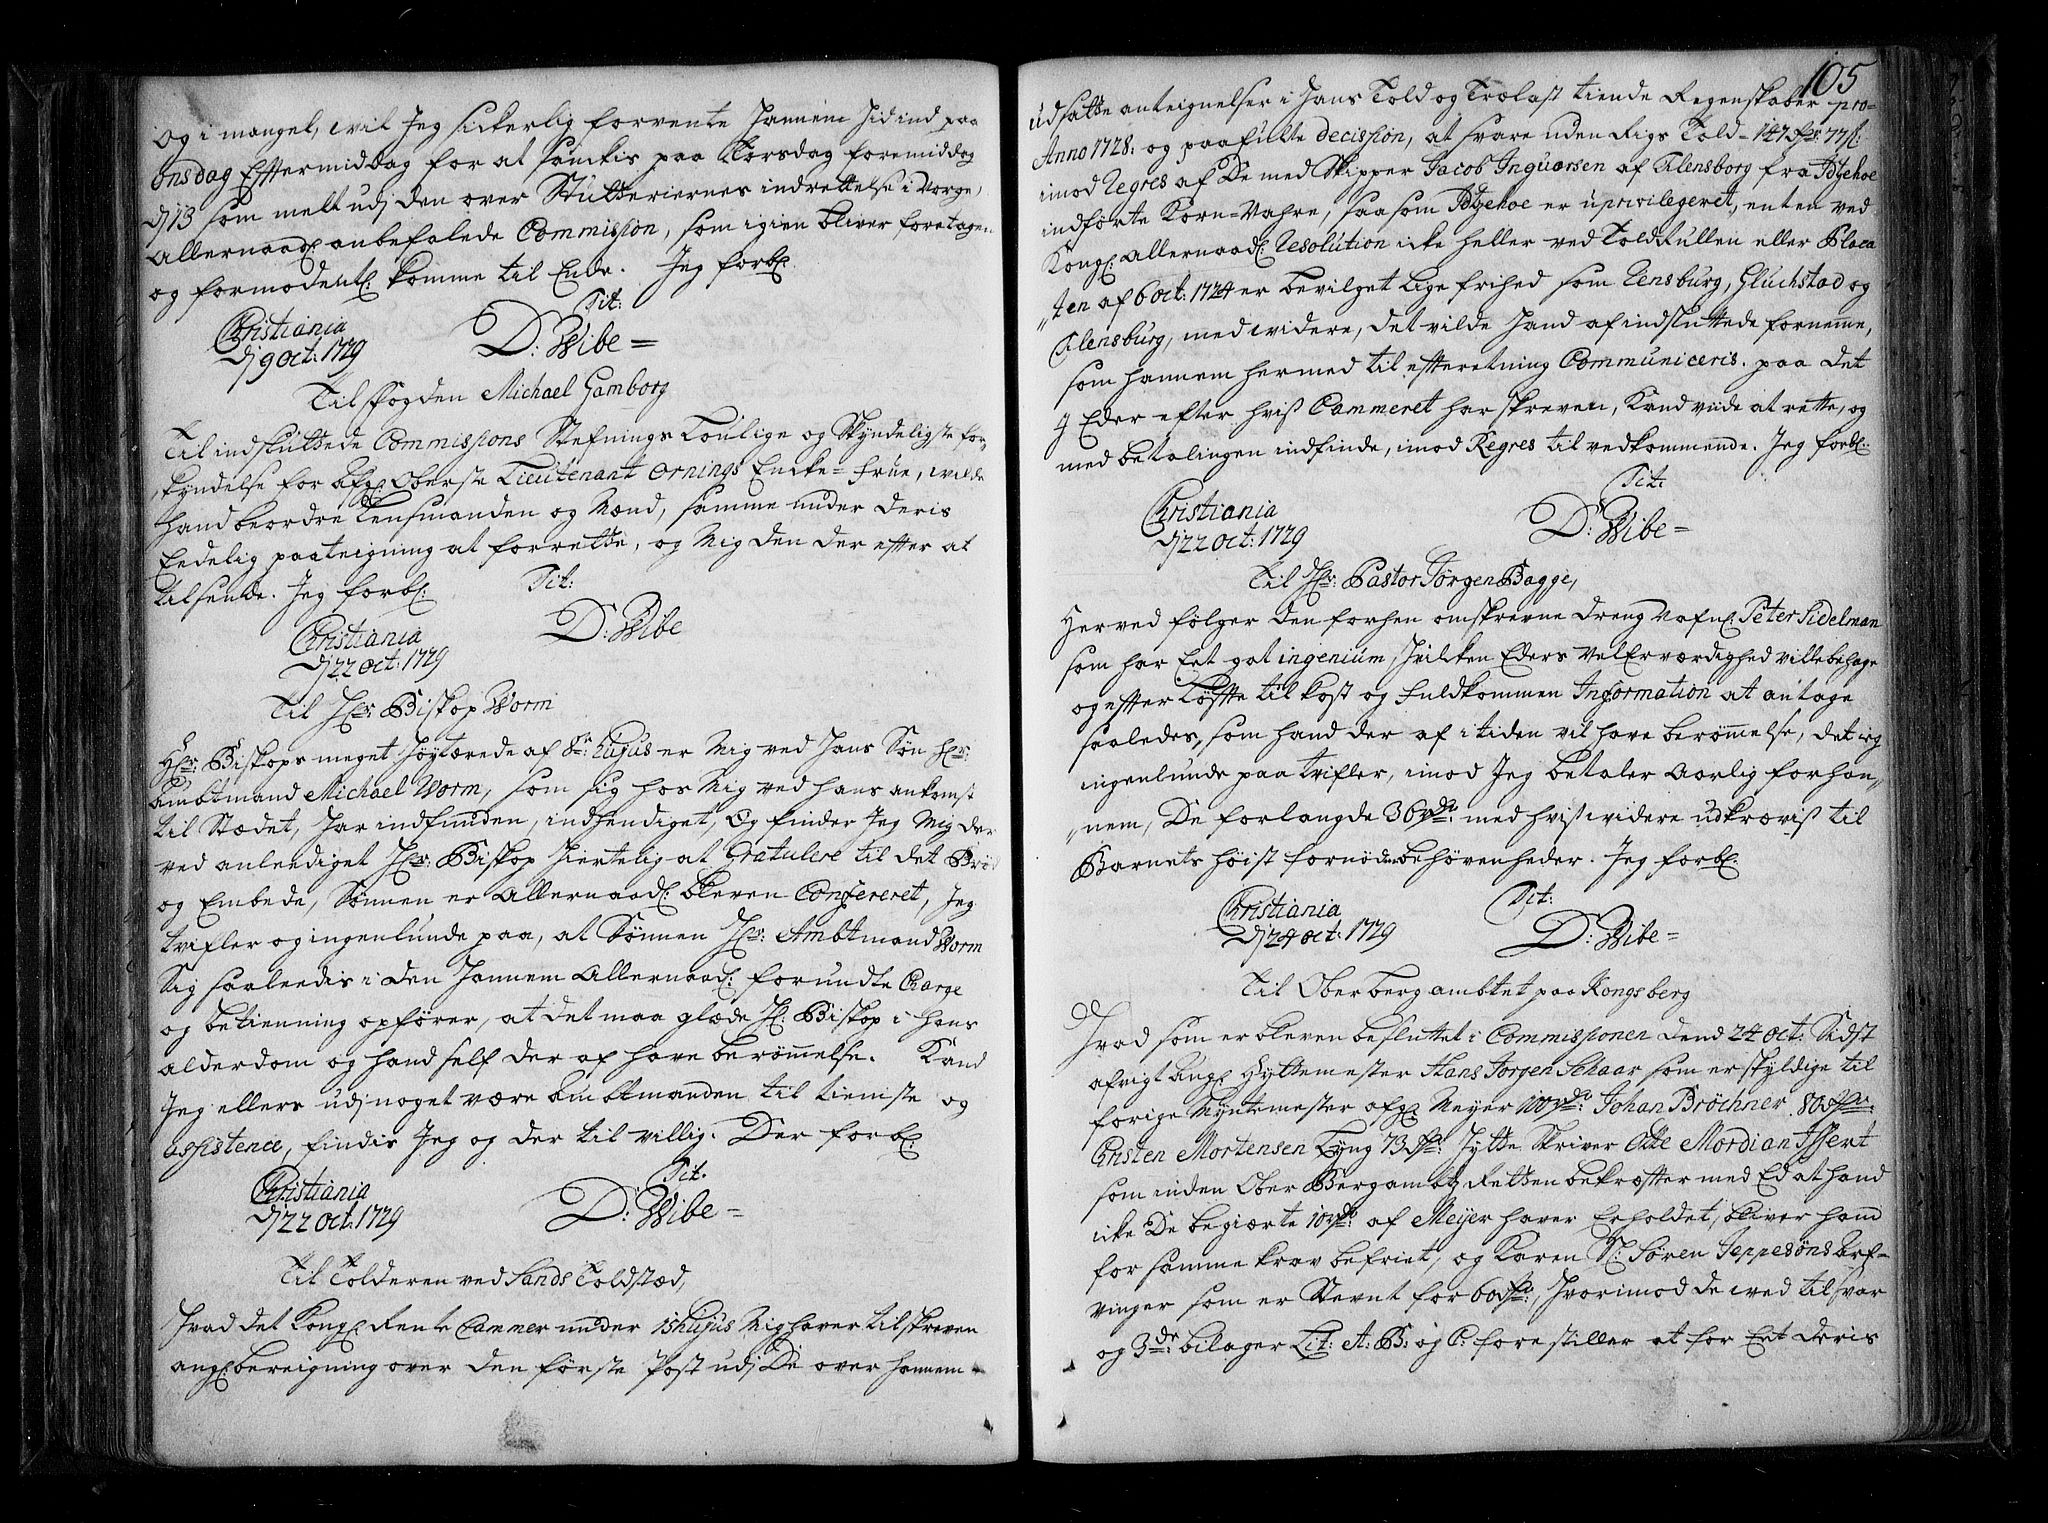 og i mangel, vil Jeg sickerlig forvente hannem hid ind paa
onsdag Efftermiddag for at samlis paa Torsdag formiddag
dj 13 som melt udj den over Stutteriernes indrettelse i Norge,
Allernaadl: anbefalede Commission, som igien bliver foretagen
og formodentl: komme til Ende. Jeg forbl:
Tit:
Christiania
dj 9 Oct: 1729
D: Wibe =
Til Fogden Michael Gamborg
Til indsluttede Commissions Stefnings Loulige og Skyndeligste for-
kyndelse for afg: Oberste Lieutenant Ornings Encke-Frue, vilde
hand beordre Lensmanden og Mænd, samme under deris
Eedelig paateigning at forrette, og Mig den der efter at
tilsende. Jeg forbl: Tit:
Christiania
dj 22 Oct: 1729
D: Wibe
Til Hr: Biskop Worm
Hr: Biskops meget Høylærede af 8de hujus er Mig ved hans Søn Hr:
Ambtmand Michael Worm, som sig hos Mig ved hans ankomst
til Stædet, har indfunden, indhendiget, Og finder Jeg Mig der
ved anlediget Hr: Biskop hiertelig at Gratulere til det
og Embede, Sønnen er Allernaadl: bleven Confereret, Jeg
tvifler og ingenlunde paa, at Sønnen Hr: Ambtmand Worm
Sig saaledis i den hannem Allernaadl: forundte Charge
og betienning opfører, at det maa glæde Hr: Biskop i hans
alderdom og hand self der af have berømmelse. Kand
Jeg ellers udj noget være Ambtmanden til tieniste og
assistence, findis Jeg og der til villig. Der forbl:
Tit.
Christiania
dj 22 Oct: 1729
D: Wibe =
Til Tolderen ved Sands Toldstæd,
Hvad det Kongl: Rente Cammer under 15 hujus Mig haver tilskreven
angl: bereigning over den første Post udj De over hannem
105
udsatte anteignelser i hans Told og Trælast tiende Regenskaber pro-
Anno 1728: og paafulte decission, at svare uden Rigs Told - 147 rdr: 77 s:
imod Regres af De med Skipper Jacob Inguarsen af Flensborg fra Itzehoe
indførte Korn-Vahre, saasom Itzehoe er uprivilegeret, enten ved
Kongl: allernaadl: Resolution icke heller ved Toldrullen eller Placa
"ten af 6 Oct: 1724 er bevilget lige frihed som Rensburg, Gluchstad og
Flensburg, med videre, det vilde hand af indsluttede fornemme,
som hannem hermed til efteretning Communiceris. paa det
J Eder efter hviß Cammeret har skreven, Kand viide at rette, og
med betalingen indfinde, imod Regres til vedkommende. Jeg forbl:
Tit:
Christiania
dj 22 Oct: 1729
D: Wibe =
Til Hr: Pastor Jørgen Bagge,
Herved følger den forhen omskrevne dreng Nafnl: Peter Sidelman
som har Eet got ingenium, hvilken Eders VelErværdighed ville behage
og efter Løfte til Kost og fuldkommen Information at antage
saaledes, som hand der af i tiden vil have berømmelse, det ieg
ingenlunde paa tvifler, imod Jeg betaler Aarlig for han-
"nem, De forlangde 36 rdr: med hviß videre udkræviß til
Barnets høist fornødenbehøvenheder. Jeg forbl:
Tit:
Christiania
dj 24 Oct: 1729
D: Wibe =
Til Oberbergambtet paa Kongsberg
Hvad som er bleven besluttet i Commissionen dend 24 Oct: Sidst
afvigt angl: Hyttemester Hans Jørgen Schaar som er skyldige til
forige Myntemester afg: Meyer 100 rdr: Johan Bröchner 80 rdr:
Christen Mortensen Lyng 73 rdr: Hytte Skriver Otte Mordian Iffert
som inden Ober Bergambtz Retten bekræfter med Ed at hand
icke De begierte 10 rdr: af Meijer haver Erholdet, bliver hand
for samme krav befriet, og Karen Sl: Søren Jeppesøns Arf-
vinger som er Stevnt for 60 rdr:, hvorimod de ved tilsvar
og 3de: bilager Lit: A: B: og C: forestiller at for Eet deris